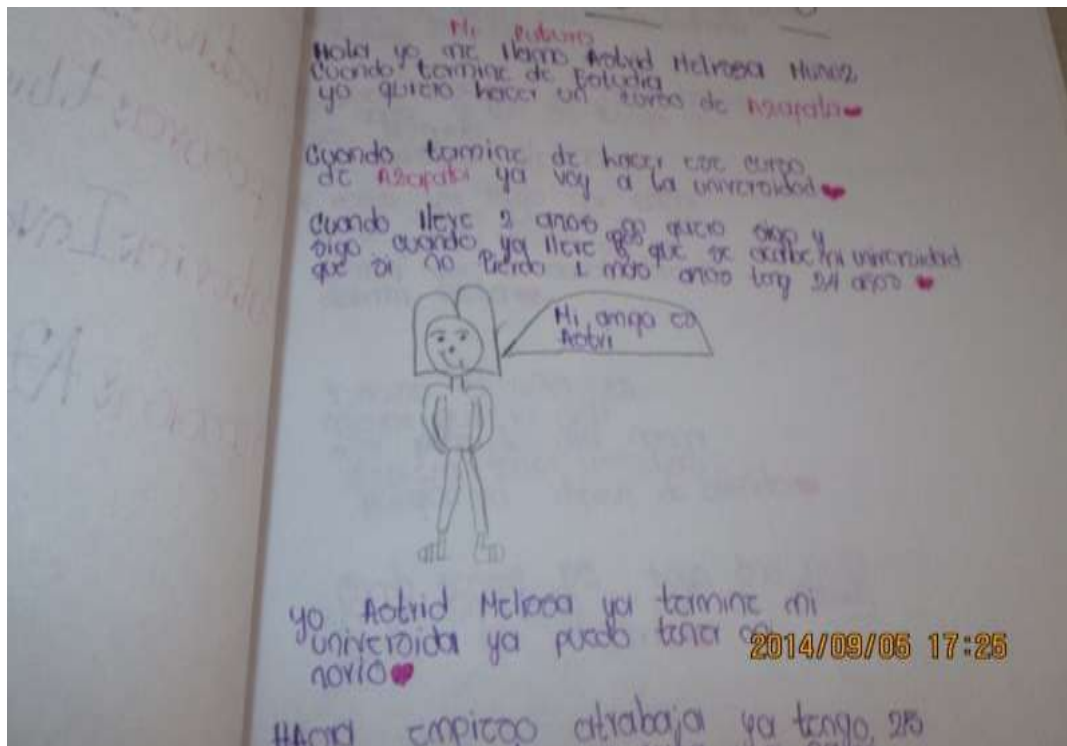 Mi Futuro
Hola yo me llamo Astrid Melissa Muñoz
Cuando termine de Estudia
yo quiero hacer un curso de Azafata
Cuando tamine de hacer ese curso
de Azafata ya voy a la universidad
Cuando lleve 2 anos quiero sigo y
sigo cuando ya lleve que se acabe mi universidad
que si no Pierdo 1 mas anos teng 24 años
Mi amiga es
Astri
yo Astrid Melissa ya termine mi
universida ya puedo tener
novio
2014/09/05 17:25
empieso atrabaja ya tengo 25